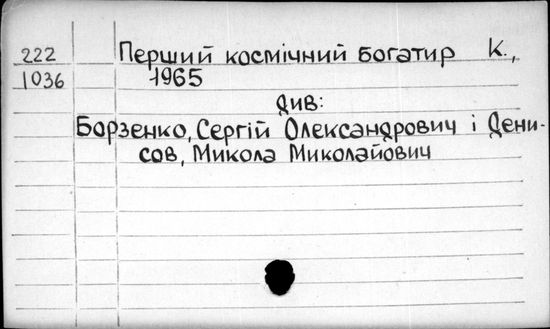 222 Перший космічний богатир К.,
1036 1965
див:
Борзенко, Сергій Олександрович і Дени-
сов, Микола Миколайович